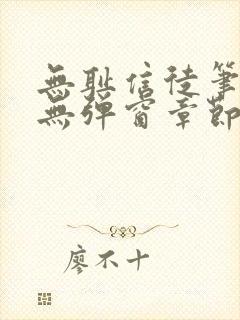 無恥信徒筆
無彈窗章節
廖不十